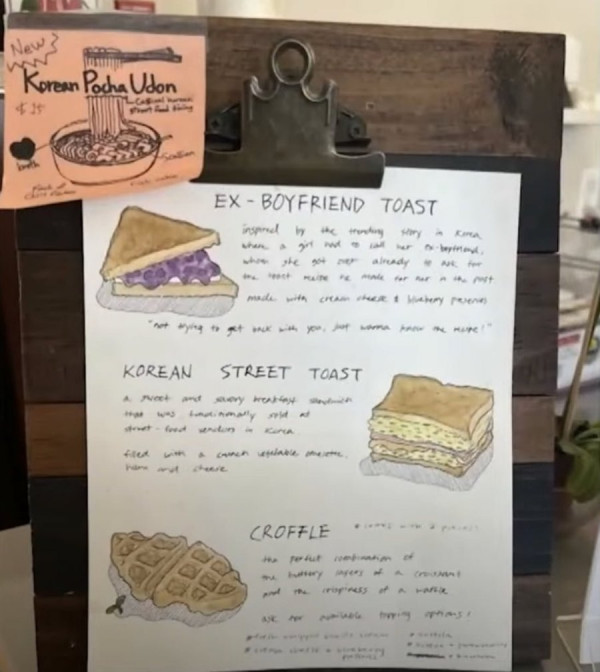 New
Korean Pocha Udon
street food
broth
Scallion
EX-BOYFRIEND TOAST
inspired by the trending story in Korea
where a girl had to call her ex-boyfriend,
whom she got over already to ask for
the toast recipe he made for her in the past
made with cream cheese & blueberry preserves
"not trying to get back with you, just wanna know the recipe!"
KOREAN STREET TOAST
a sweet and savory breakfast sandwich
that was traditionally sold at
street-food vendors in Korea
filled with a cabbage vegetable omelette,
ham and cheese
CROFFLE
* comes with 2 pieces!
the perfect combination of
the buttery layers of a croissant
and the crispiness of a waffle
ask for available topping options!
* cream cheese + blueberry
preserves